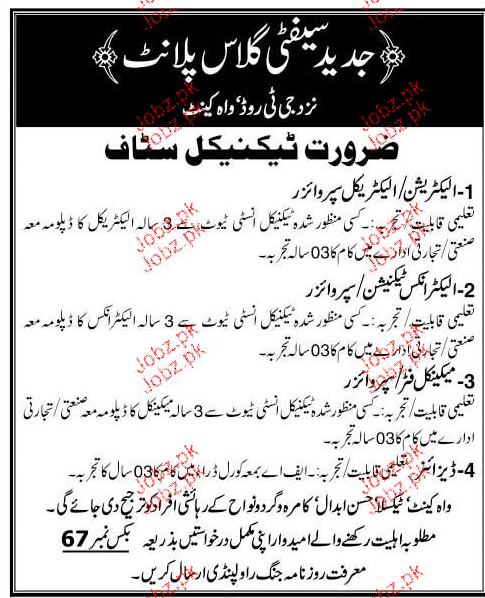 جدید سیفٹی گلاس پلانٹ
نزد جی ٹی روڈ، واہ کینٹ
ضرورت ٹیکنیکل سٹاف
1-الیکٹریشن/الیکٹریکل سپروائزر
تعلیمی قابلیت/تجربہ:۔کسی منظور شدہ ٹیکنیکل انسٹی ٹیوٹ سے 3 سالہ الیکٹریکل کا ڈپلومہ معہ
صنعتی/تجارتی ادارے میں کام کا 03 سالہ تجربہ۔
2-الیکٹرانکس ٹیکنیشن/سپروائزر
تعلیمی قابلیت/تجربہ:۔کسی منظور شدہ ٹیکنیکل انسٹی ٹیوٹ سے 3 سالہ الیکٹرانکس کا ڈپلومہ معہ
صنعتی/تجارتی ادارے میں کام کا 03 سالہ تجربہ۔
3-میکینکل فٹر/سپروائزر
تعلیمی قابلیت/تجربہ:۔کسی منظور شدہ ٹیکنیکل انسٹی ٹیوٹ سے 3 سالہ میکینکل کا ڈپلومہ معہ صنعتی/تجارتی
ادارے میں کام کا 03 سالہ تجربہ۔
4-ڈیزائنر تعلیمی قابلیت/تجربہ:۔ایف اے بمعہ کورل ڈرا میں کام کا 03 سال کا تجربہ۔
واہ کینٹ، ٹیکسلا، حسن ابدال، کامرہ و گردونواح کے رہائشی افراد کو ترجیح دی جائے گی۔
مطلوبہ اہلیت رکھنے والے امیدوار اپنی مکمل درخواستیں بذریعہ بکس نمبر 67
معرفت روزنامہ جنگ راولپنڈی ارسال کریں۔
Jobz.pk